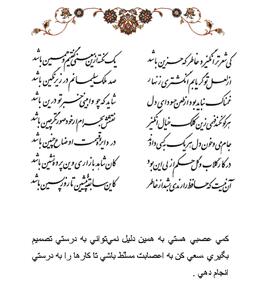 کی شعر تر انگیزد خاطر که حزین باشد یک نکته ازین معنی گفتیم و همین باشد
از لعل تو گر یابم انگشتری زنهار صد ملک سلیمانم در زیر نگین باشد
غمناک نباید بود از طعن حسود ای دل شاید که چو وابینی خیر تو درین باشد
هر کو نکند فهمی زین کلک خیال انگیز نقشش به حرام ار خود صورتگر چین باشد
جام می و خون دل هر یک به کسی دادند در دایره قسمت اوضاع چنین باشد
در کار گلاب و گل حکم ازلی این بود کان شاهد بازاری وین پرده نشین باشد
آن نیست که حافظ را رندی بشد از خاطر کاین سابقه پیشین تا روز پسین باشد
كمي عصبي هستي به همين دليل نمي‌تواني به درستي تصميم
بگيري .سعي كن به اعصابت مسلط باشي تا كارها را به درستي
انجام دهي .